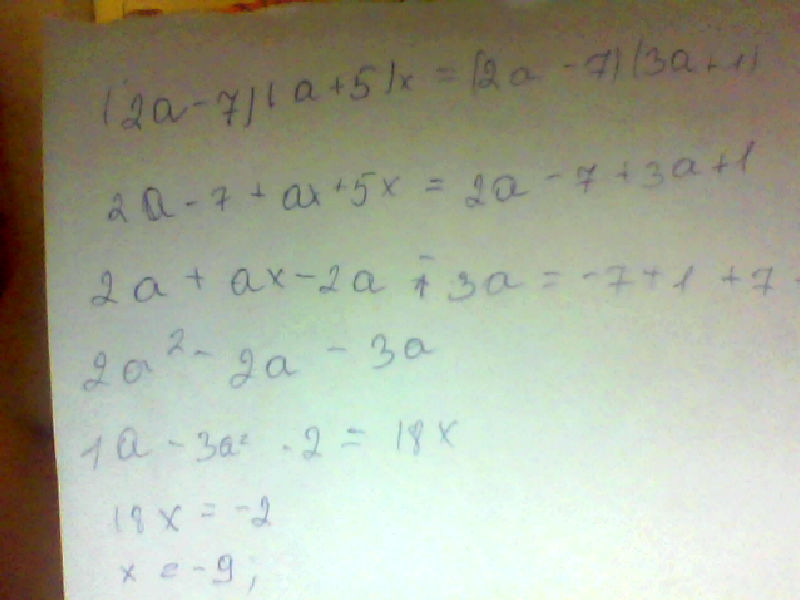 (2a-7)(a+5)x=(2a-7)(3a+1)
2a-7+ax+5x=2a-7+3a+1
2a+ax-2a+3a=-7+1+7
2a²-2a-3a
1a-3a²-2=18x
18x=-2
x=-9;